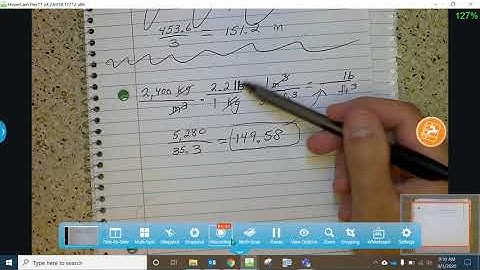 HoverCam Flex11
127%
453.6/3 = 151.2 m
2,400 kg/m³ · 2.2 lb/1 kg · 1 m³ = lb/ft³
5,280/35.3 = 149.58
Side-by-Side Multi-Sync Snapshot Recording Multi-Scan Pause View Options Zoom Cropping Whiteboard Settings
Type here to search
9/1/2020